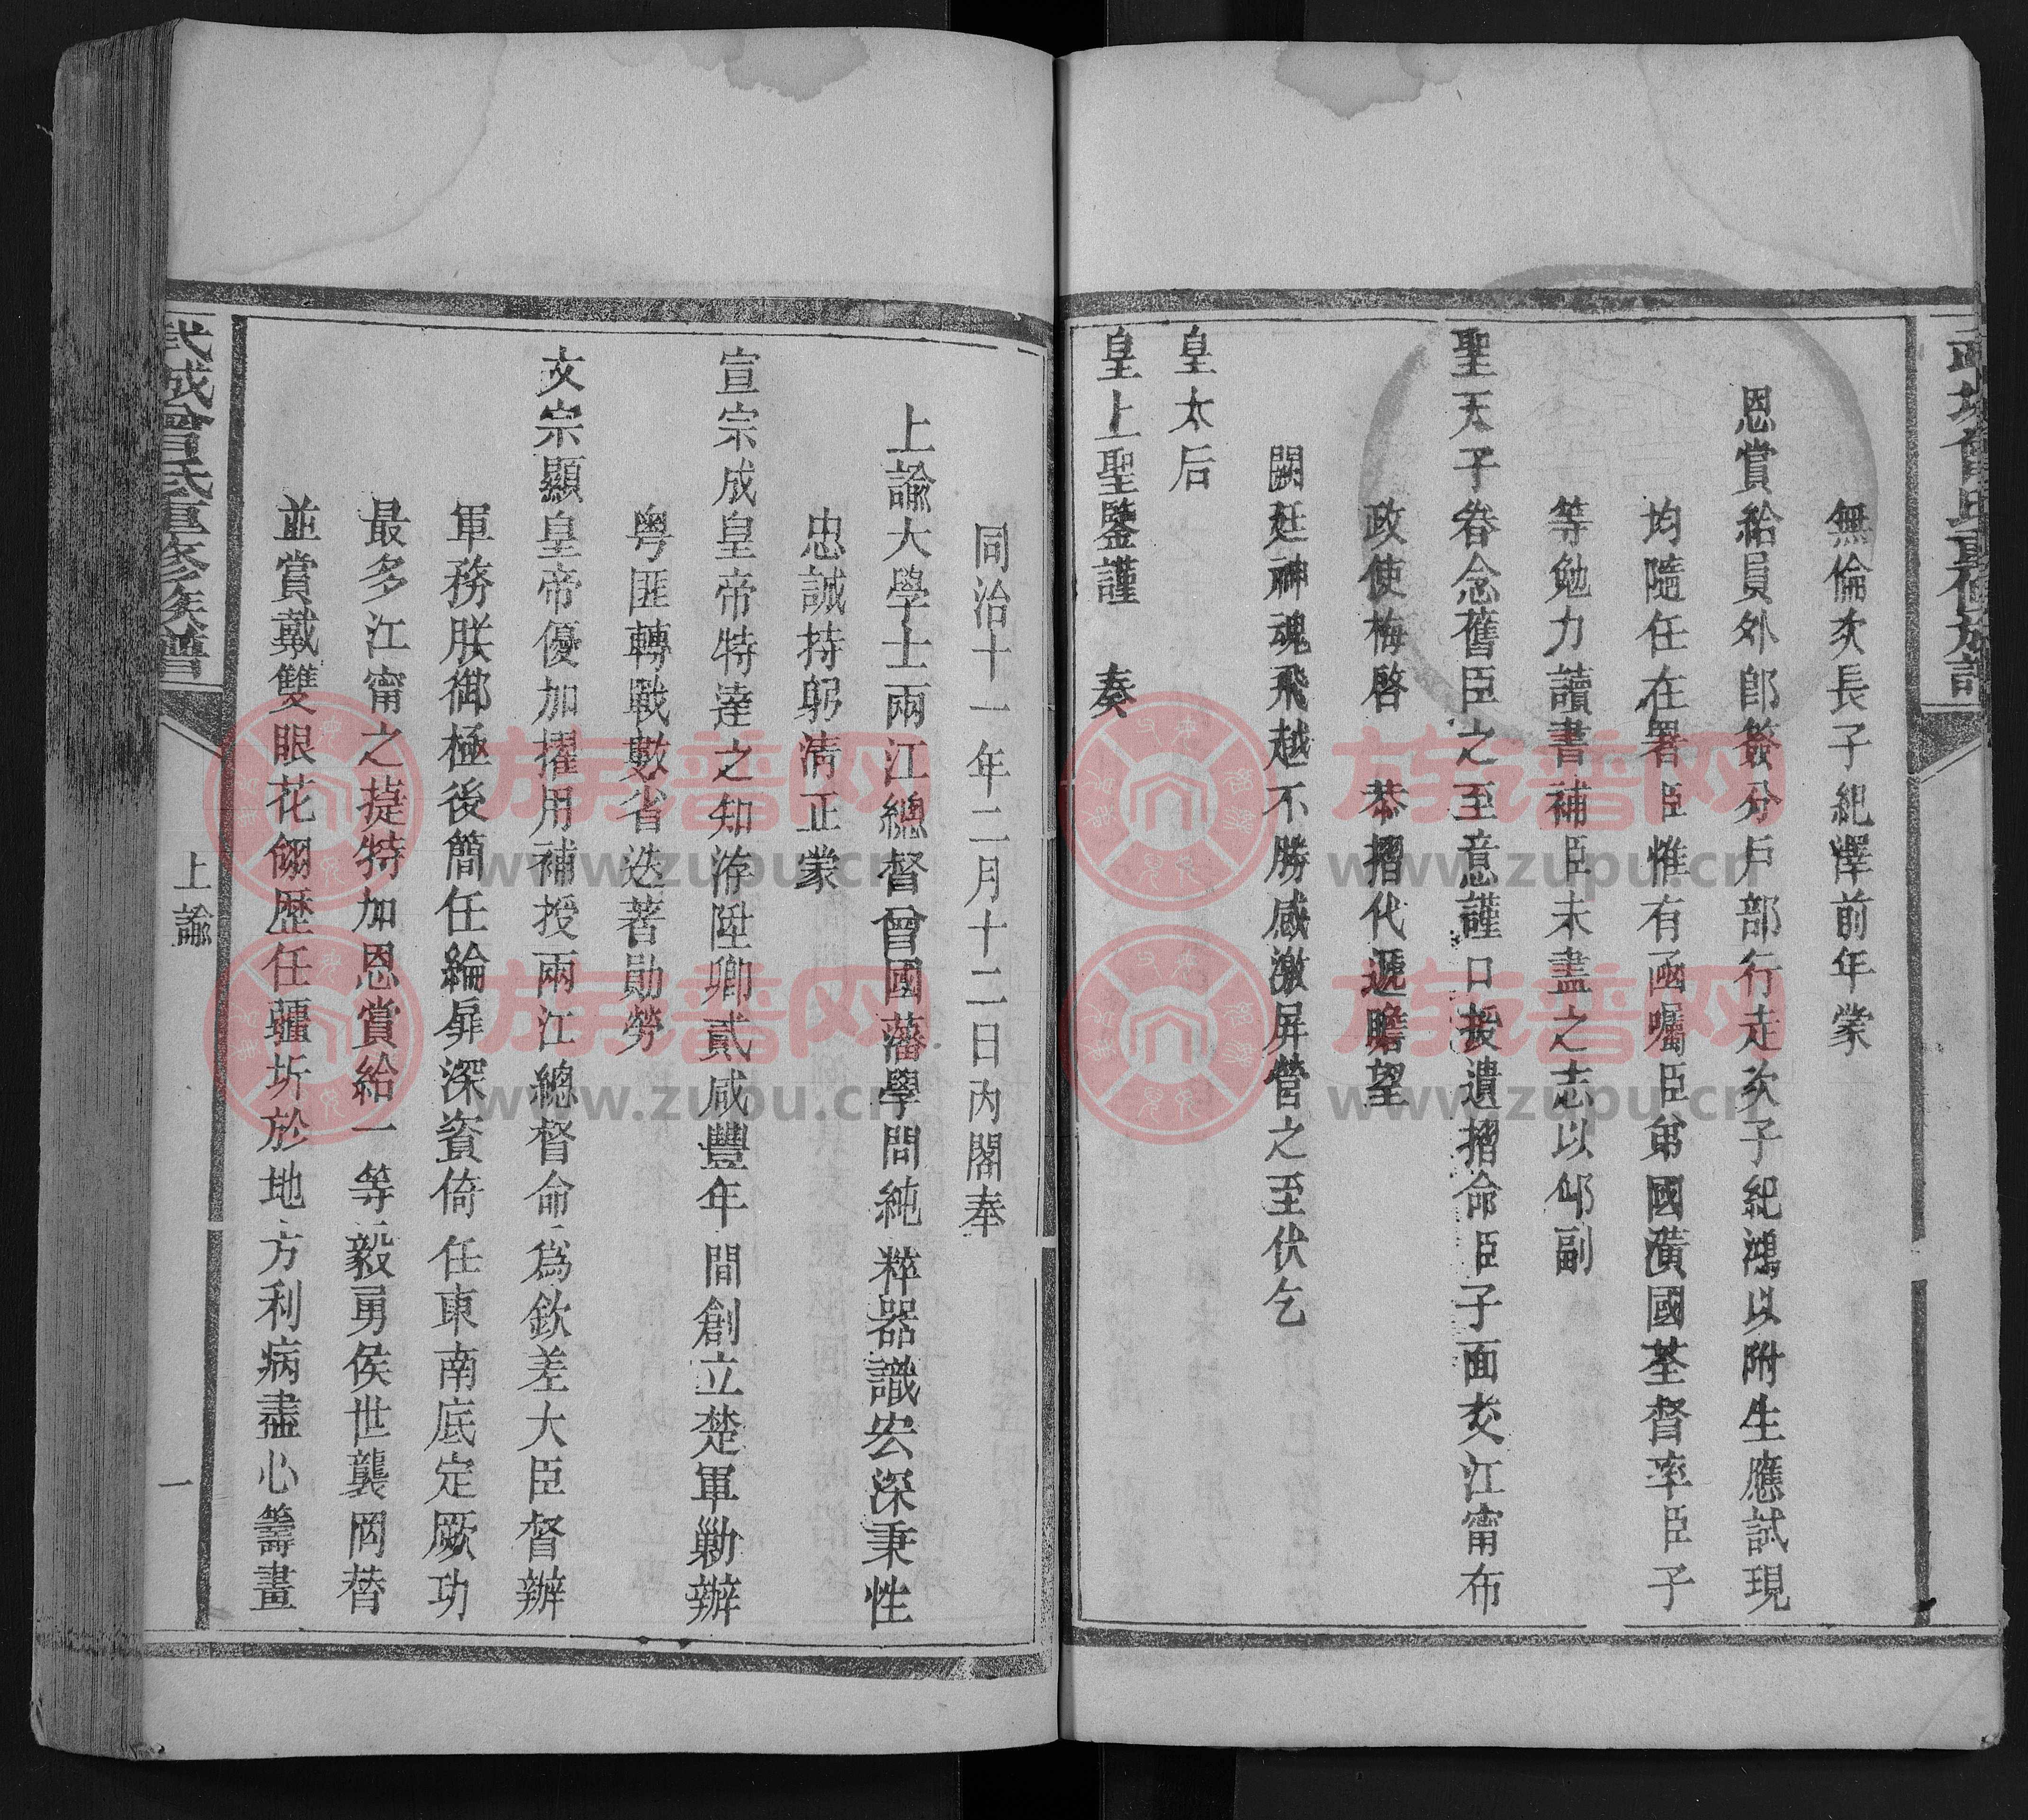 無倫次長子紀澤前年蒙
恩賞給員外郎簽分戶部行走次子紀鴻以附生應試現
均隨任在署臣惟有函囑臣弟國潢國荃督率臣子
等勉力讀書補臣未盡之志以仰副
聖天子眷念舊臣之至意謹口授遺摺命臣子面交江甯布
政使梅啓 恭摺代遞瞻望
闕廷神魂飛越不勝感激屏營之至伏乞
皇太后
皇上聖鑒謹 奏
同治十一年二月十二日內閣奉
上諭大學士兩江總督曾國藩學問純粹器識宏深秉性
忠誠持躬清正蒙
宣宗成皇帝特達之知洊陞卿貳咸豐年間創立楚軍勦辦
粵匪轉戰數省迭著勛勞
文宗顯皇帝優加擢用補授兩江總督命為欽差大臣督辦
軍務朕御極後簡任綸扉深資倚任東南底定厥功
最多江甯之捷特加恩賞給一等毅勇侯世襲罔替
並賞戴雙眼花翎歷任疆圻於地方利病盡心籌畫
武城曾氏重修族譜
上諭
一
族谱网
www.zupu.cn
族谱网
www.zupu.cn
族谱网
www.zupu.cn
族谱网
www.zupu.cn